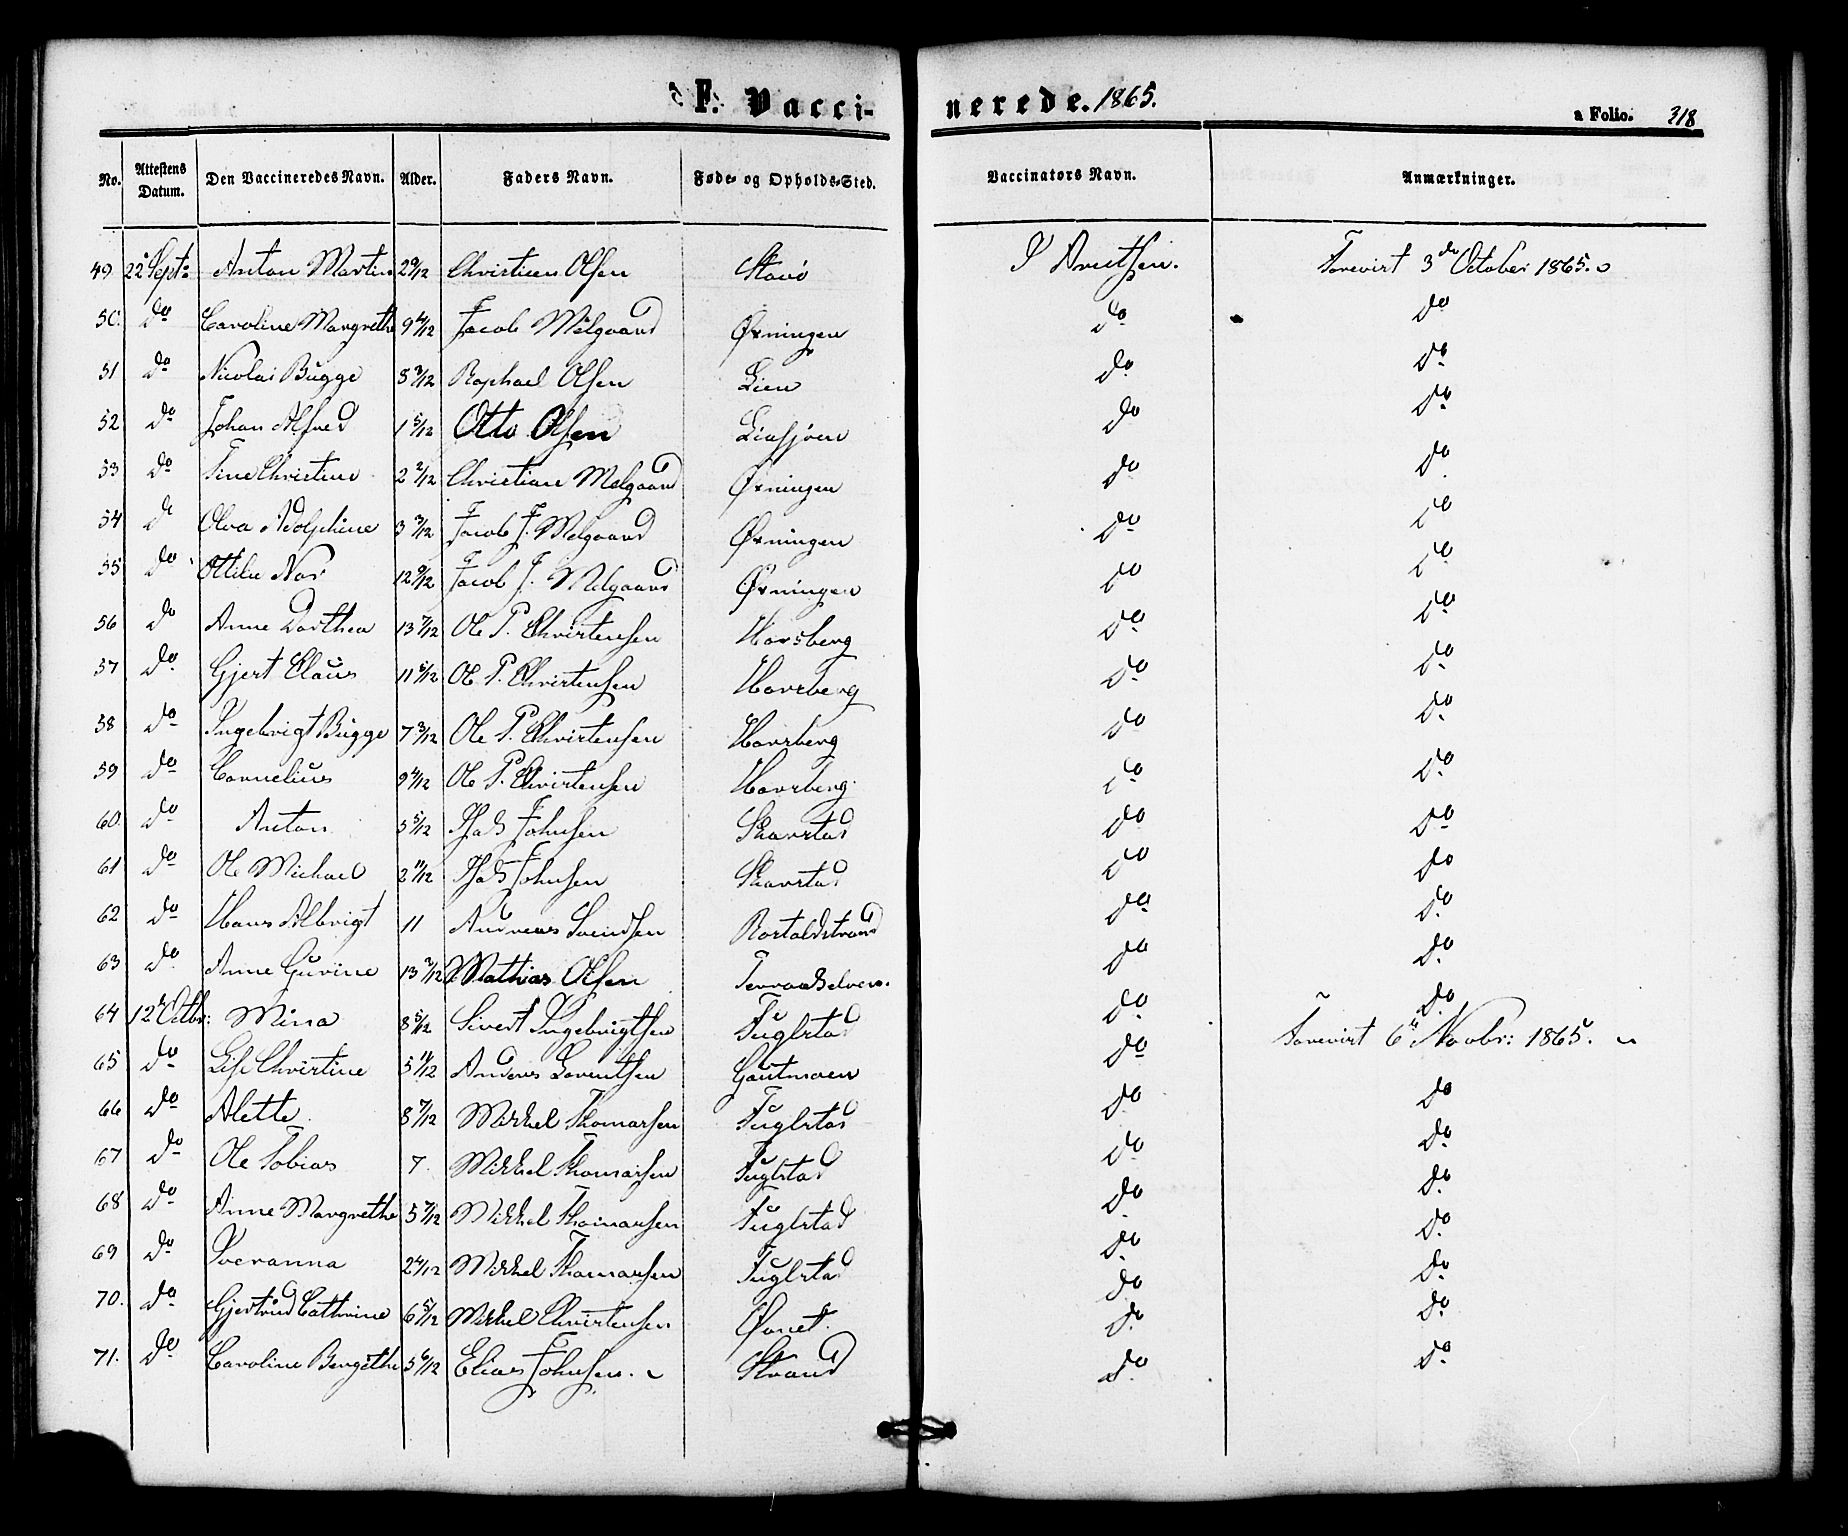 F. Vaccinerede. 1865. a Folio. 318
No. Attestens Datum. Den Vaccineredes Navn. Alder. Faders Navn. Føde- og Opholds-Sted. Vaccinators Navn. Anmærkninger.
49 22 Sept: Anton Martin 2 9/12 Christian Olsen 3de October 1865.
50. do Caroline Margrethe 9 4/12 Jacob Melgaard Øxningen do do
51 do Nicolai Bugge 5 3/12 Raphael Olsen Lien do do
52 do Johan Alfred 1 5/12 Otto Olsen Liasjøen do do
53 do Tine Christine 2 2/12 Christian Melgaard Øxningen do do
54 do Olva Adolphine 3 3/12 Jacob J. Melgaard Øxningen do do
55 do Ottilie 12 9/12 Jacob J. Melgaard Øxningen do do
56 do Anne Dorthea 13 7/12 Ole P. Christensen Horsberg do do
57 do Gjert Claus 11 5/12 Ole P. Christensen Horsberg do do
58 do Ingebrigt Bugge 7 3/12 Ole P. Christensen Horsberg do do
59 do Cornelius 9/12 Ole P. Christensen Horsberg do do
60. do Anton 5 5/12 Johnsen Skarstad do do
61 do Ole Michael 2 11/12 Johnsen Skarstad do do
62 do Hans Albrigt 11 Andreas Svendsen do do
63 do Anne Gurine 13 2/12 Mathias Olsen Terraaselven. do do
64 12 Octbr: Mina 8 5/12 Sivert Ingebrigtsen Fuglstad do do
65 do Lise Christine 5 11/12 Anders Lorentsen Gautmoen do 6te Novbr: 1865.
66 do Alette 8 7/12 Mikkel Thomassen Fuglstad do do
67 do Ole Tobias 7 Mikkel Thomassen Fuglstad do do
68 do Anne Margrethe 5 7/12 Mikkel Thomassen Fuglstad do do
69 do 2 4/12 Mikkel Thomassen Fuglstad do do
70. do Gjertrud Cathrine 6 5/12 Mikkel Christensen do do
71. do Caroline Bergithe 5 6/12 Elias Johnsen. Strand do do